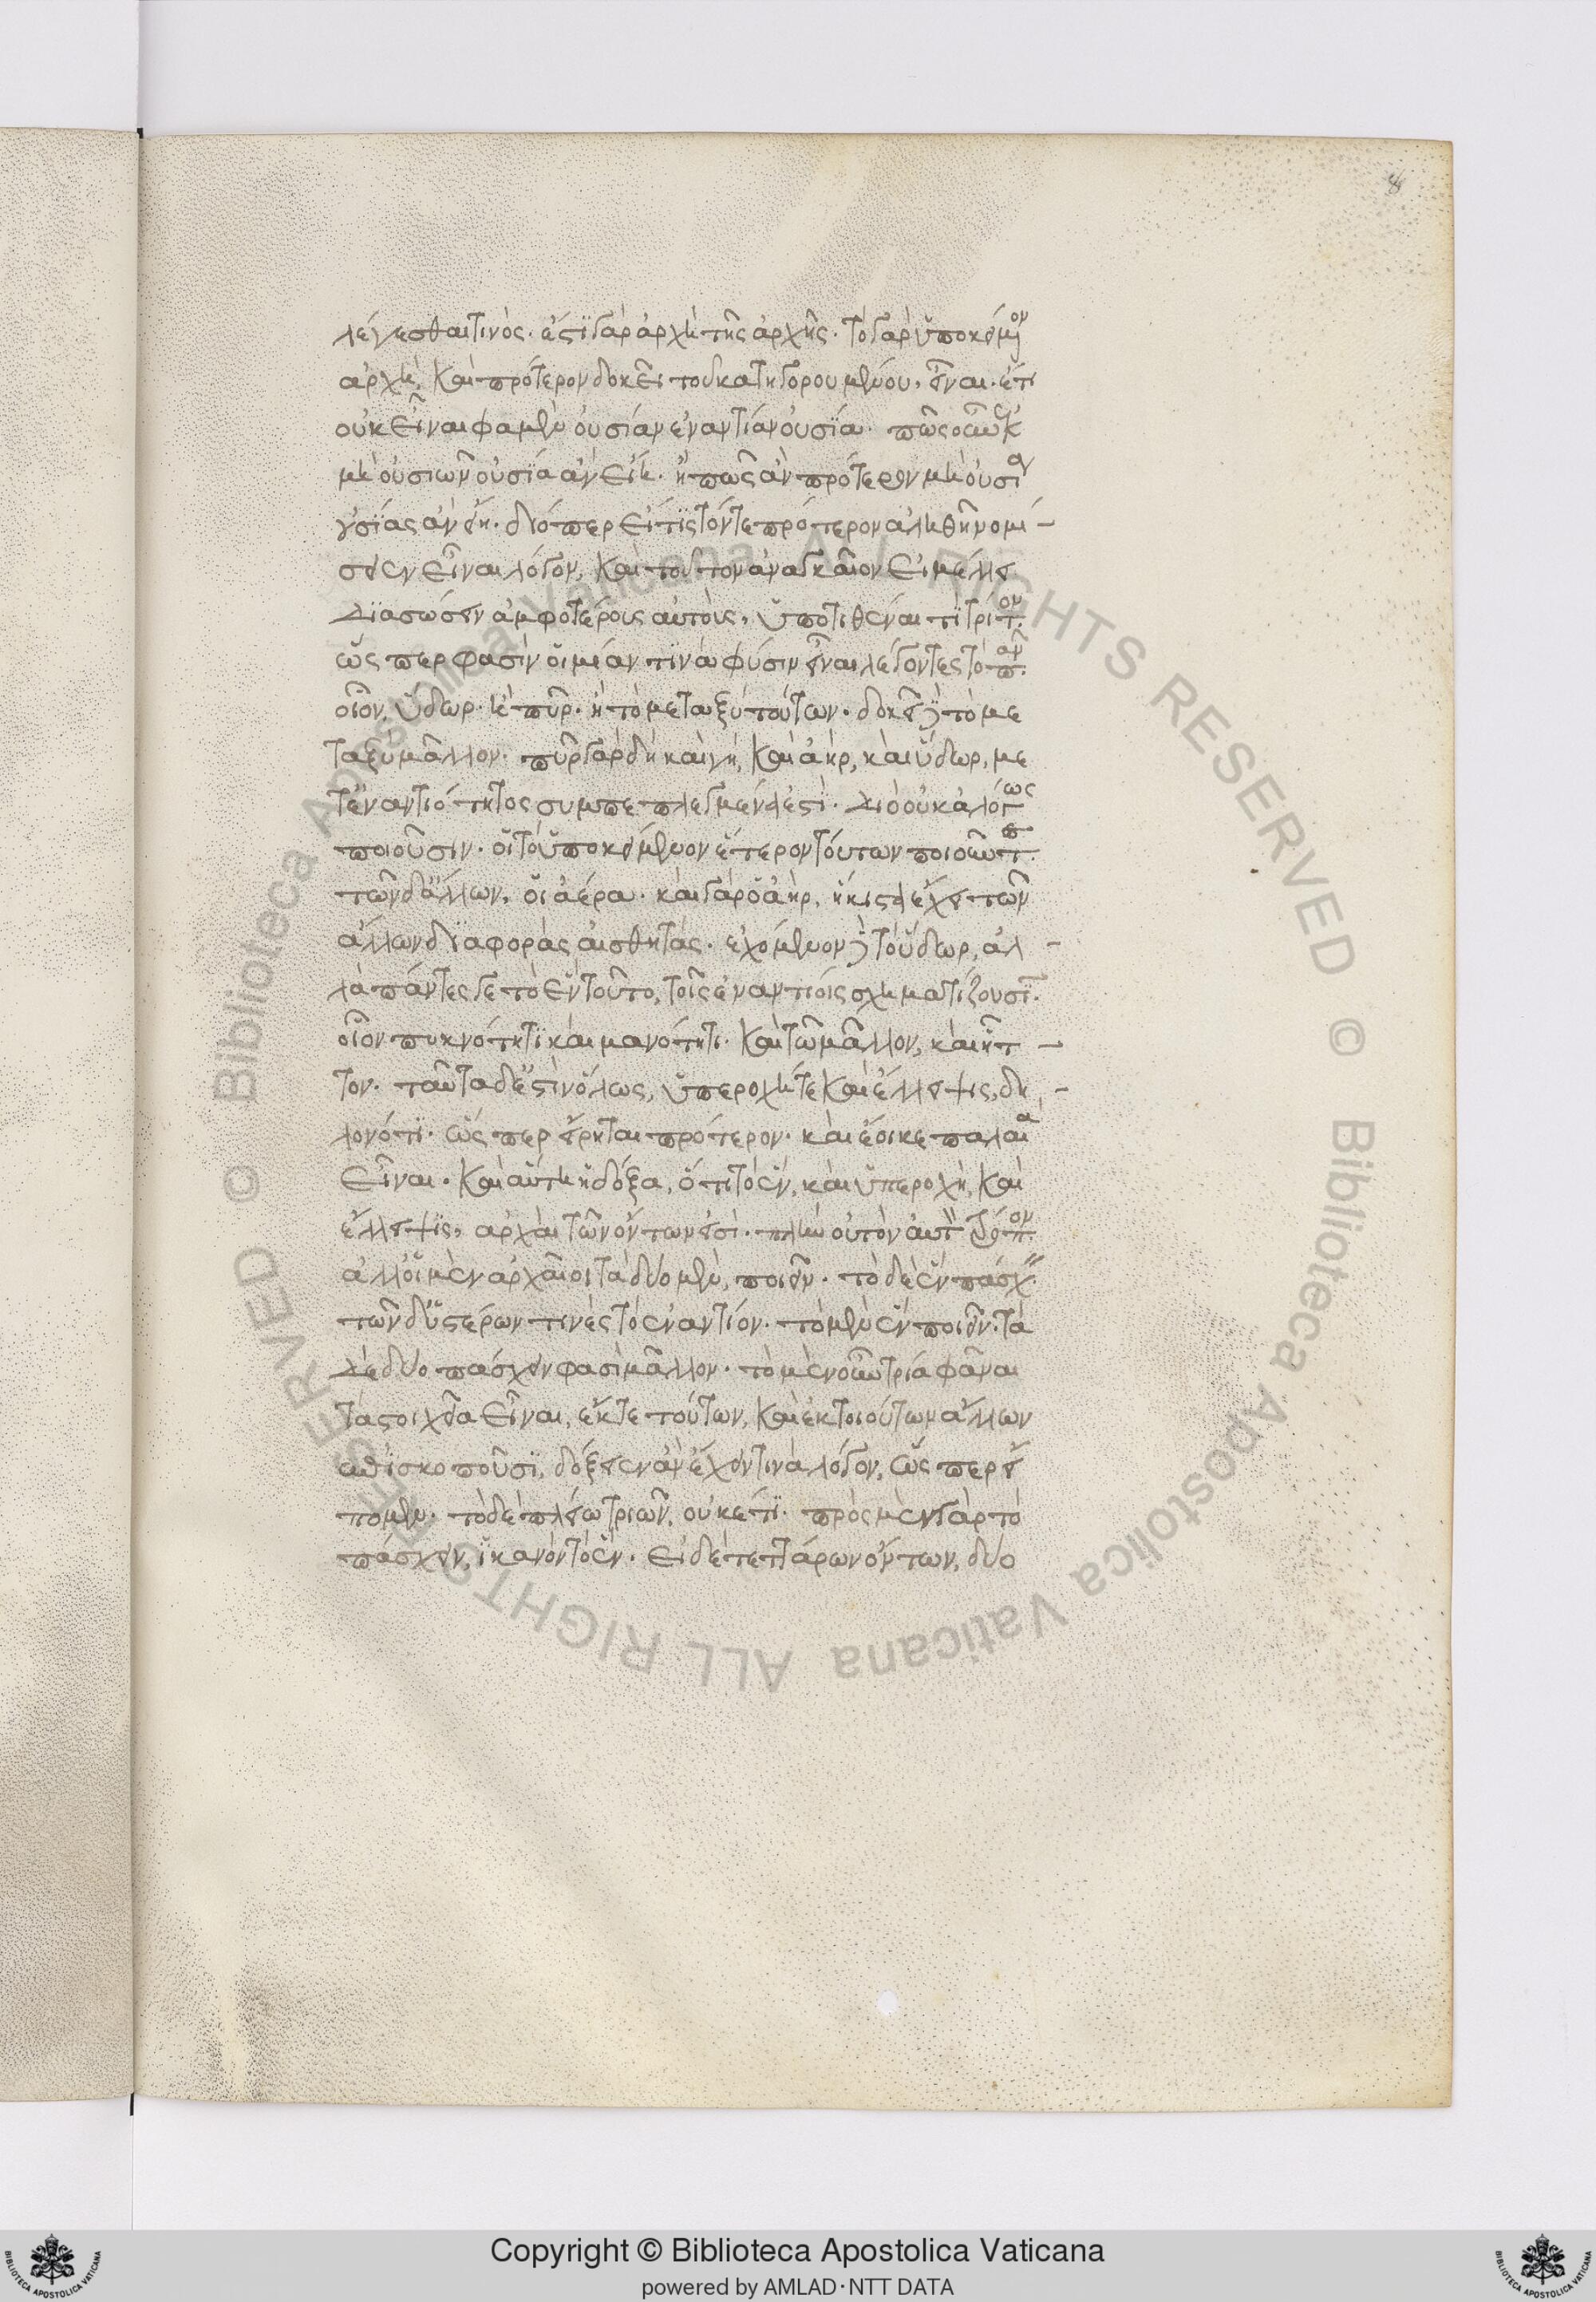 8
λέγεσθαι τινός. ἔστι γὰρ ἀρχὴ τῆς ἀρχῆς. τὸ γὰρ ὑποκείμενον
ἀρχὴ, καὶ πρότερον δοκεῖ τοῦ κατηγορουμένου, εἶναι. ἔτι
οὐκ εἶναι φαμὲν οὐσίαν ἐναντίαν οὐσία. πῶς οὖν ἐκ
μὴ οὐσιῶν οὐσία ἂν εἴη. ἢ πῶς ἂν πρότερον μὴ οὐσία
οὐσίας ἂν εἴη. διόπερ εἴ τις τόν τε πρότερον ἀληθῆ νομί-
σειεν εἶναι λόγον, καὶ τοῦτον ἀναγκαῖον εἰ μέλλει
διασώσειν ἀμφοτέροις αὐτοῖς, ὑποτιθέναι τὶ τρίτον.
ὥσπερ φασὶν οἱ μίαν τινὰ φύσιν εἶναι λέγοντες τὸ πᾶν.
οἷον, ὕδωρ. ἢ πῦρ. ἢ τὸ μεταξὺ τούτων. δοκεῖ δὲ τὸ με
ταξὺ μᾶλλον. πῦρ γὰρ δὴ καὶ γῆ, καὶ ἀὴρ, καὶ ὕδωρ, με
τ' ἐναντιότητος συμπεπλεγμένα ἐστί. διὸ οὐκ ἀλόγως
ποιοῦσιν. οἱ τὸ ὑποκείμενον ἕτερον τούτων ποιοῦντες.
τῶν δ' ἄλλων, οἱ ἀέρα. καὶ γὰρ ὁ ἀὴρ, ἥκιστα ἔχει τῶν
ἄλλων διαφορὰς αἰσθητάς. ἐχόμενον δὲ τὸ ὕδωρ, ἀλ-
λὰ πάντες γε τὸ ἓν τοῦτο, τοῖς ἐναντίοις σχηματίζουσι.
οἷον πυκνότητι καὶ μανότητι. καὶ τῶ μᾶλλον, καὶ ἧτ-
τον. ταῦτα δ' ἐστὶν ὅλως, ὑπεροχή τε καὶ ἔλλειψις, δη-
λονότι. ὥσπερ εἴρηται πρότερον. καὶ ἔοικε παλαιὰ
εἶναι. καὶ αὕτη ἡ δόξα, ὅτι τὸ ἓν, καὶ ὑπεροχὴ, καὶ
ἔλλειψις, ἀρχαὶ τῶν ὄντων εἰσί. πλὴν οὐ τὸν αὐτὸν τρόπον.
ἀλλ' οἱ μὲν ἀρχαῖοι τὰ δύο μὲν, ποιεῖν. τὸ δὲ ἓν πάσχειν.
τῶν δ' ὑστέρων τινὲς τὸ ἐναντίον. τὸ μὲν ἓν ποιεῖν. τὰ
δὲ δύο πάσχειν φασὶ μᾶλλον. τὸ μὲν οὖν τρία φάναι
τὰ στοιχεῖα εἶναι, ἔκ τε τούτων, καὶ ἐκ τοιούτων ἄλλων
ἐπισκοποῦσι, δόξειεν ἂν ἔχειν τινὰ λόγον, ὥσπερ εἴ
πομεν. τὸ δὲ πλείω τριῶν, οὐκέτι. πρὸς μὲν γὰρ τὸ
πάσχειν, ἱκανὸν τὸ ἕν. εἰ δὲ τεττάρων ὄντων, δύο
Copyright © Biblioteca Apostolica Vaticana
powered by AMLAD·NTT DATA